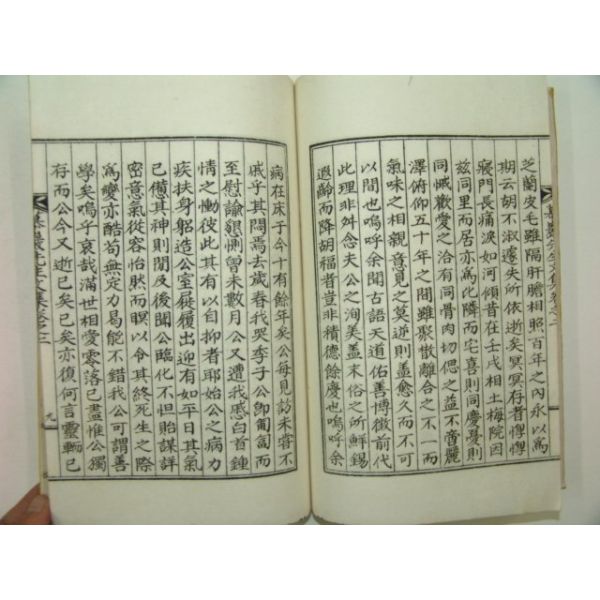 芝蘭皮毛雖隔肝膽相照百年之內永以爲
期云胡不淑遽失所依逝矣冥冥存者惸惸
寢門長痛淚如河傾昔在壬戌相土梅院因
玆同里而居亦爲此隣同而宅喜則同慶憂則
同慽歡愛之洽有同骨肉切偲之益不啻麗
澤俯仰五十年之間雖聚散離合之不一而
氣味之相親意見之莫逆則盖愈久而不可
以間也嗚呼余聞古語天道佑善博徵前代
此理非舛念夫公之洵美盖末俗之所鮮錫
遐齡而降胡福者豈非積德餘慶也嗚呼余
病在床于今十有餘年矣公毋見訪未嘗不
戚乎其闊焉去歲春我哭李子公卽匍匐而
至慰諭懇惻曾未數月公又遭我慼白首鍾
情之慟彼此其有以自抑者耶始公之病力
疾扶身躬造公室屣履出迎有如平日其氣
已憊其神則閒及後聞公臨化不怛貽謀詳
密意氣從容怡然而瞑以令其終死生之際
爲變亦酷苟無定力易能不錯我公可謂善
學矣嗚呼哀哉滿世相愛零落已盡惟公獨
存而公今又逝已矣已矣亦復何言靈輀已
先生文集卷之二
九